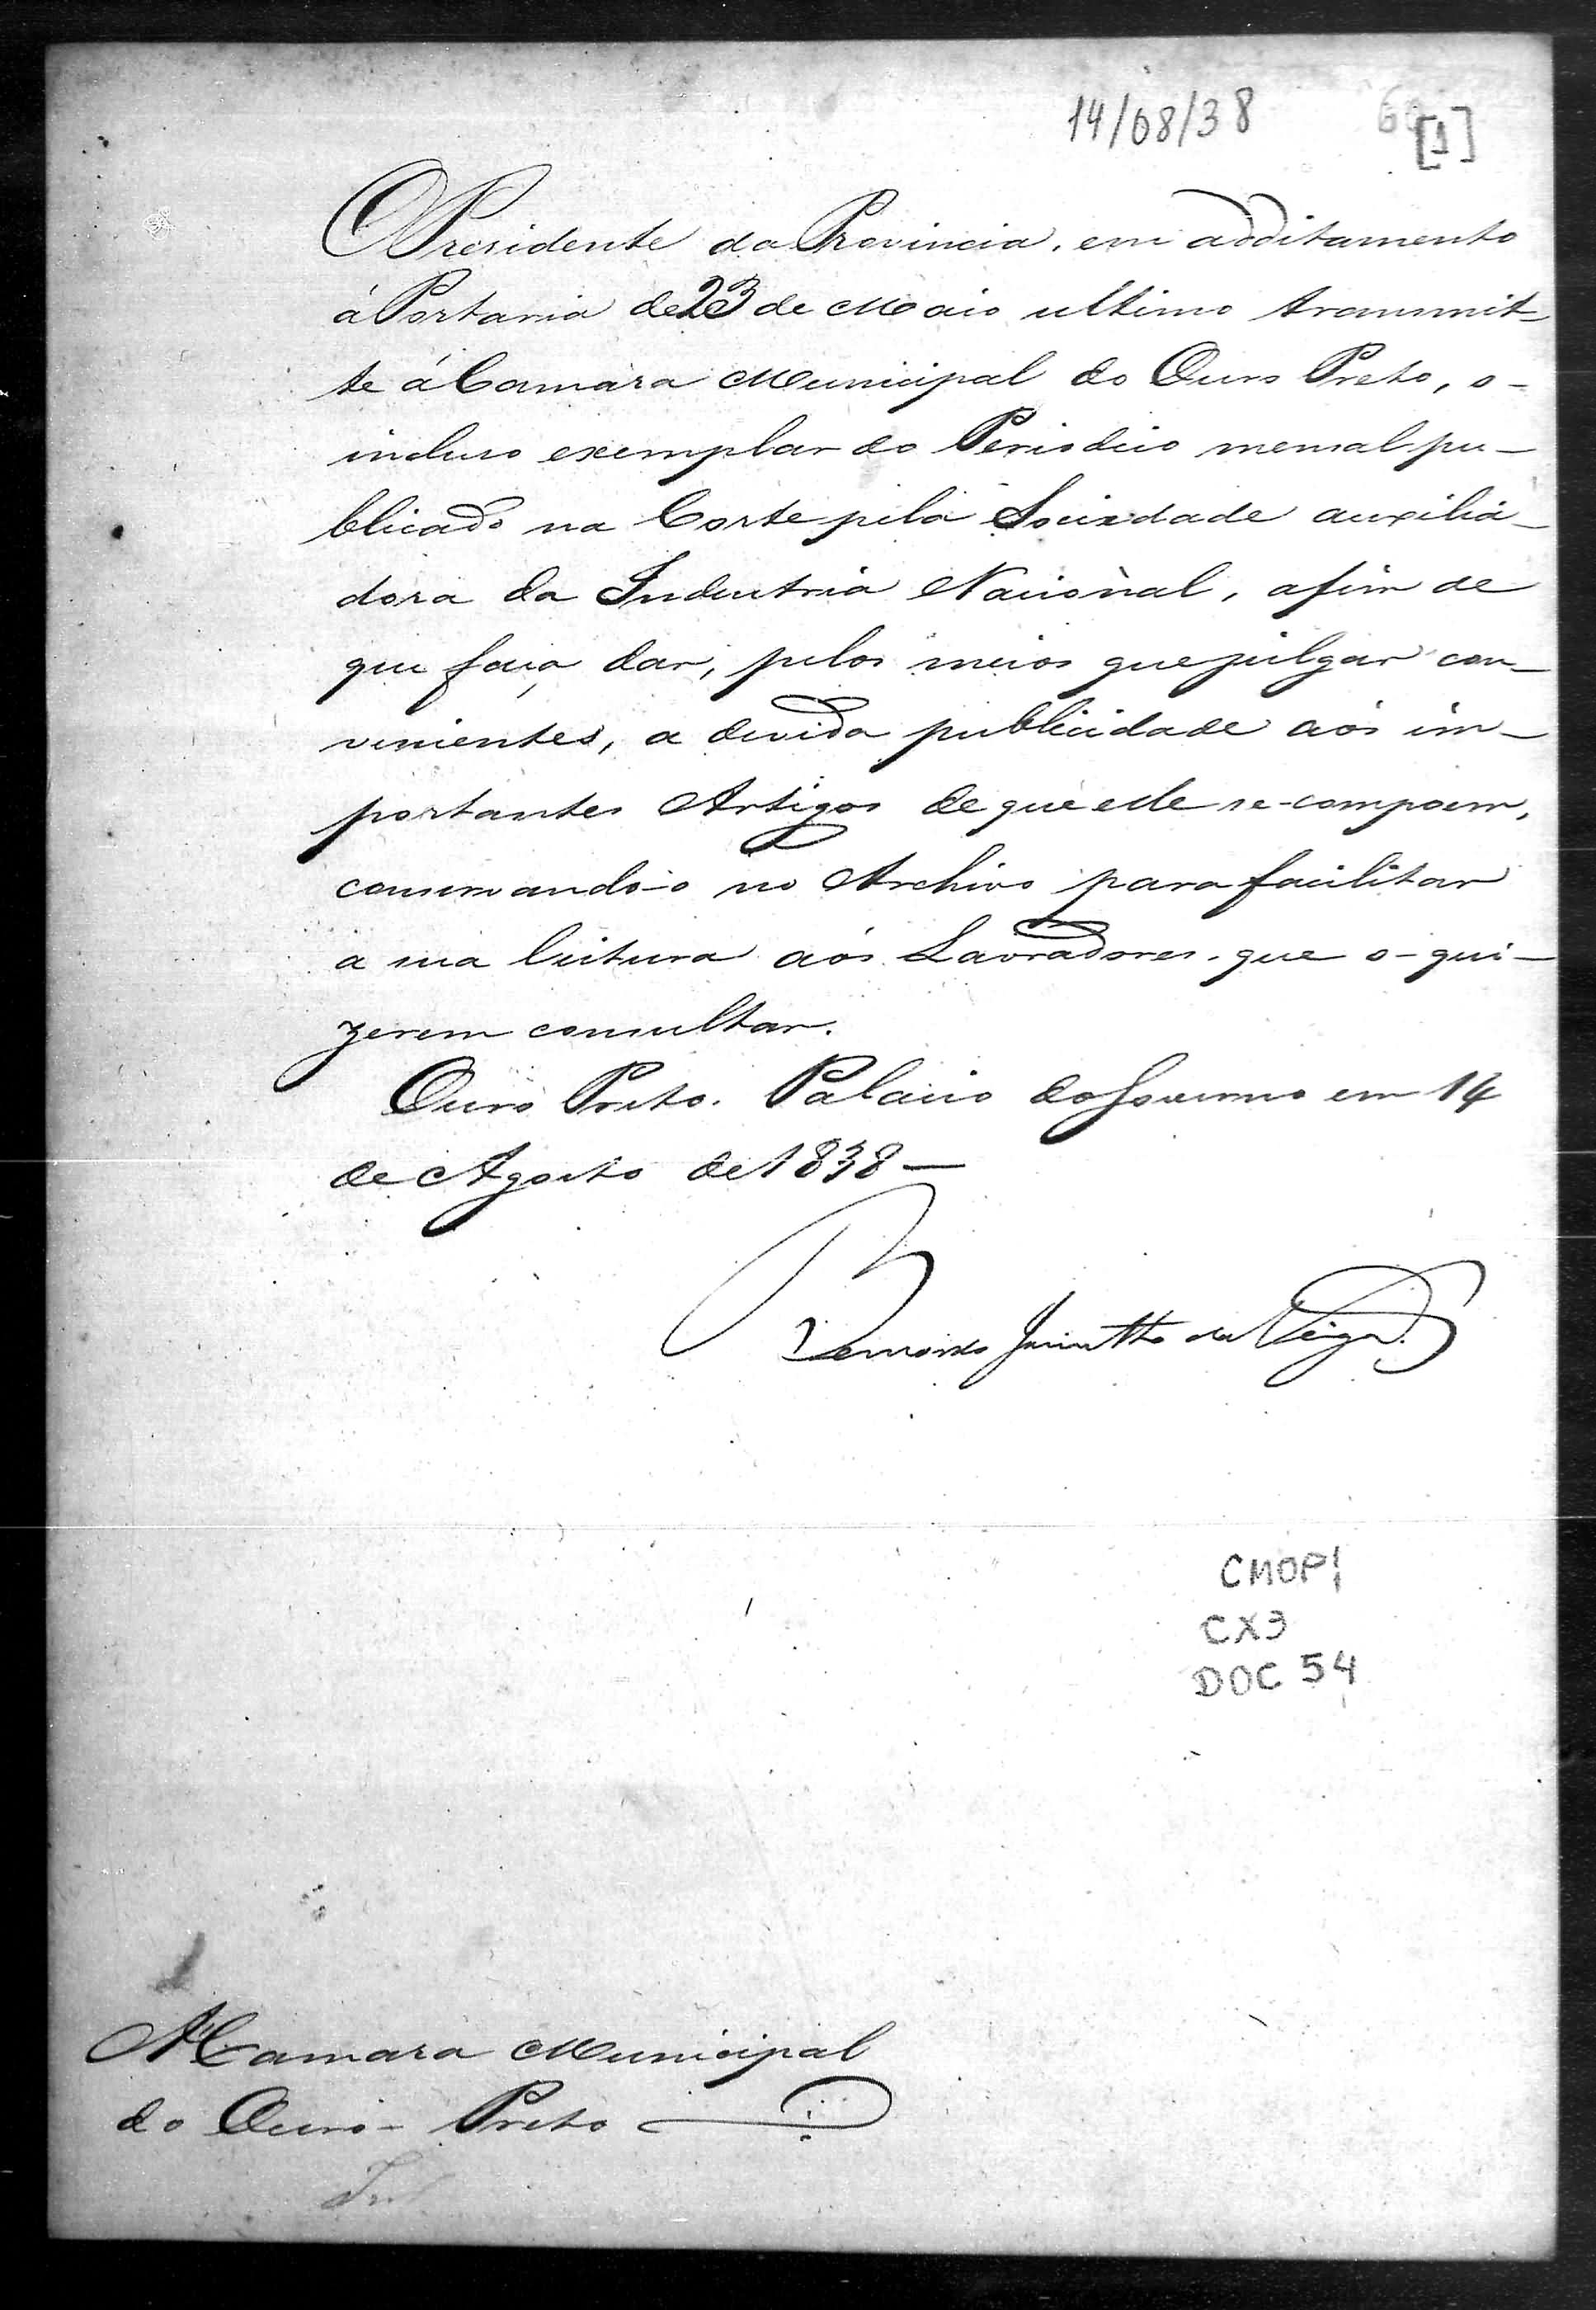 14/08/38
[1]
O Presidente da Provincia, em additamento
á Portaria de 23 de Maio ultimo transmit-
te á Camara Municipal do Ouro Preto, o-
incluso exemplar do Periodico mensal pu-
blicado na Corte pela Sociedade auxilia-
dora da Industria Nacional, afim de
que faça dar, pelos meios que julgar con-
venientes, a devida publicidade aos im-
portantes Artigos de que elle se-compoem,
conservando-o no Archivo para facilitar
a sua leitura aos Lavradores que o-qui-
zerem consultar.
Ouro Preto. Palacio do Governo em 14
de Agosto de 1838 —
Bernardo Jacintho da Veiga.
CMOP1
CX3
DOC 54
Á Camara Municipal
do Ouro-Preto